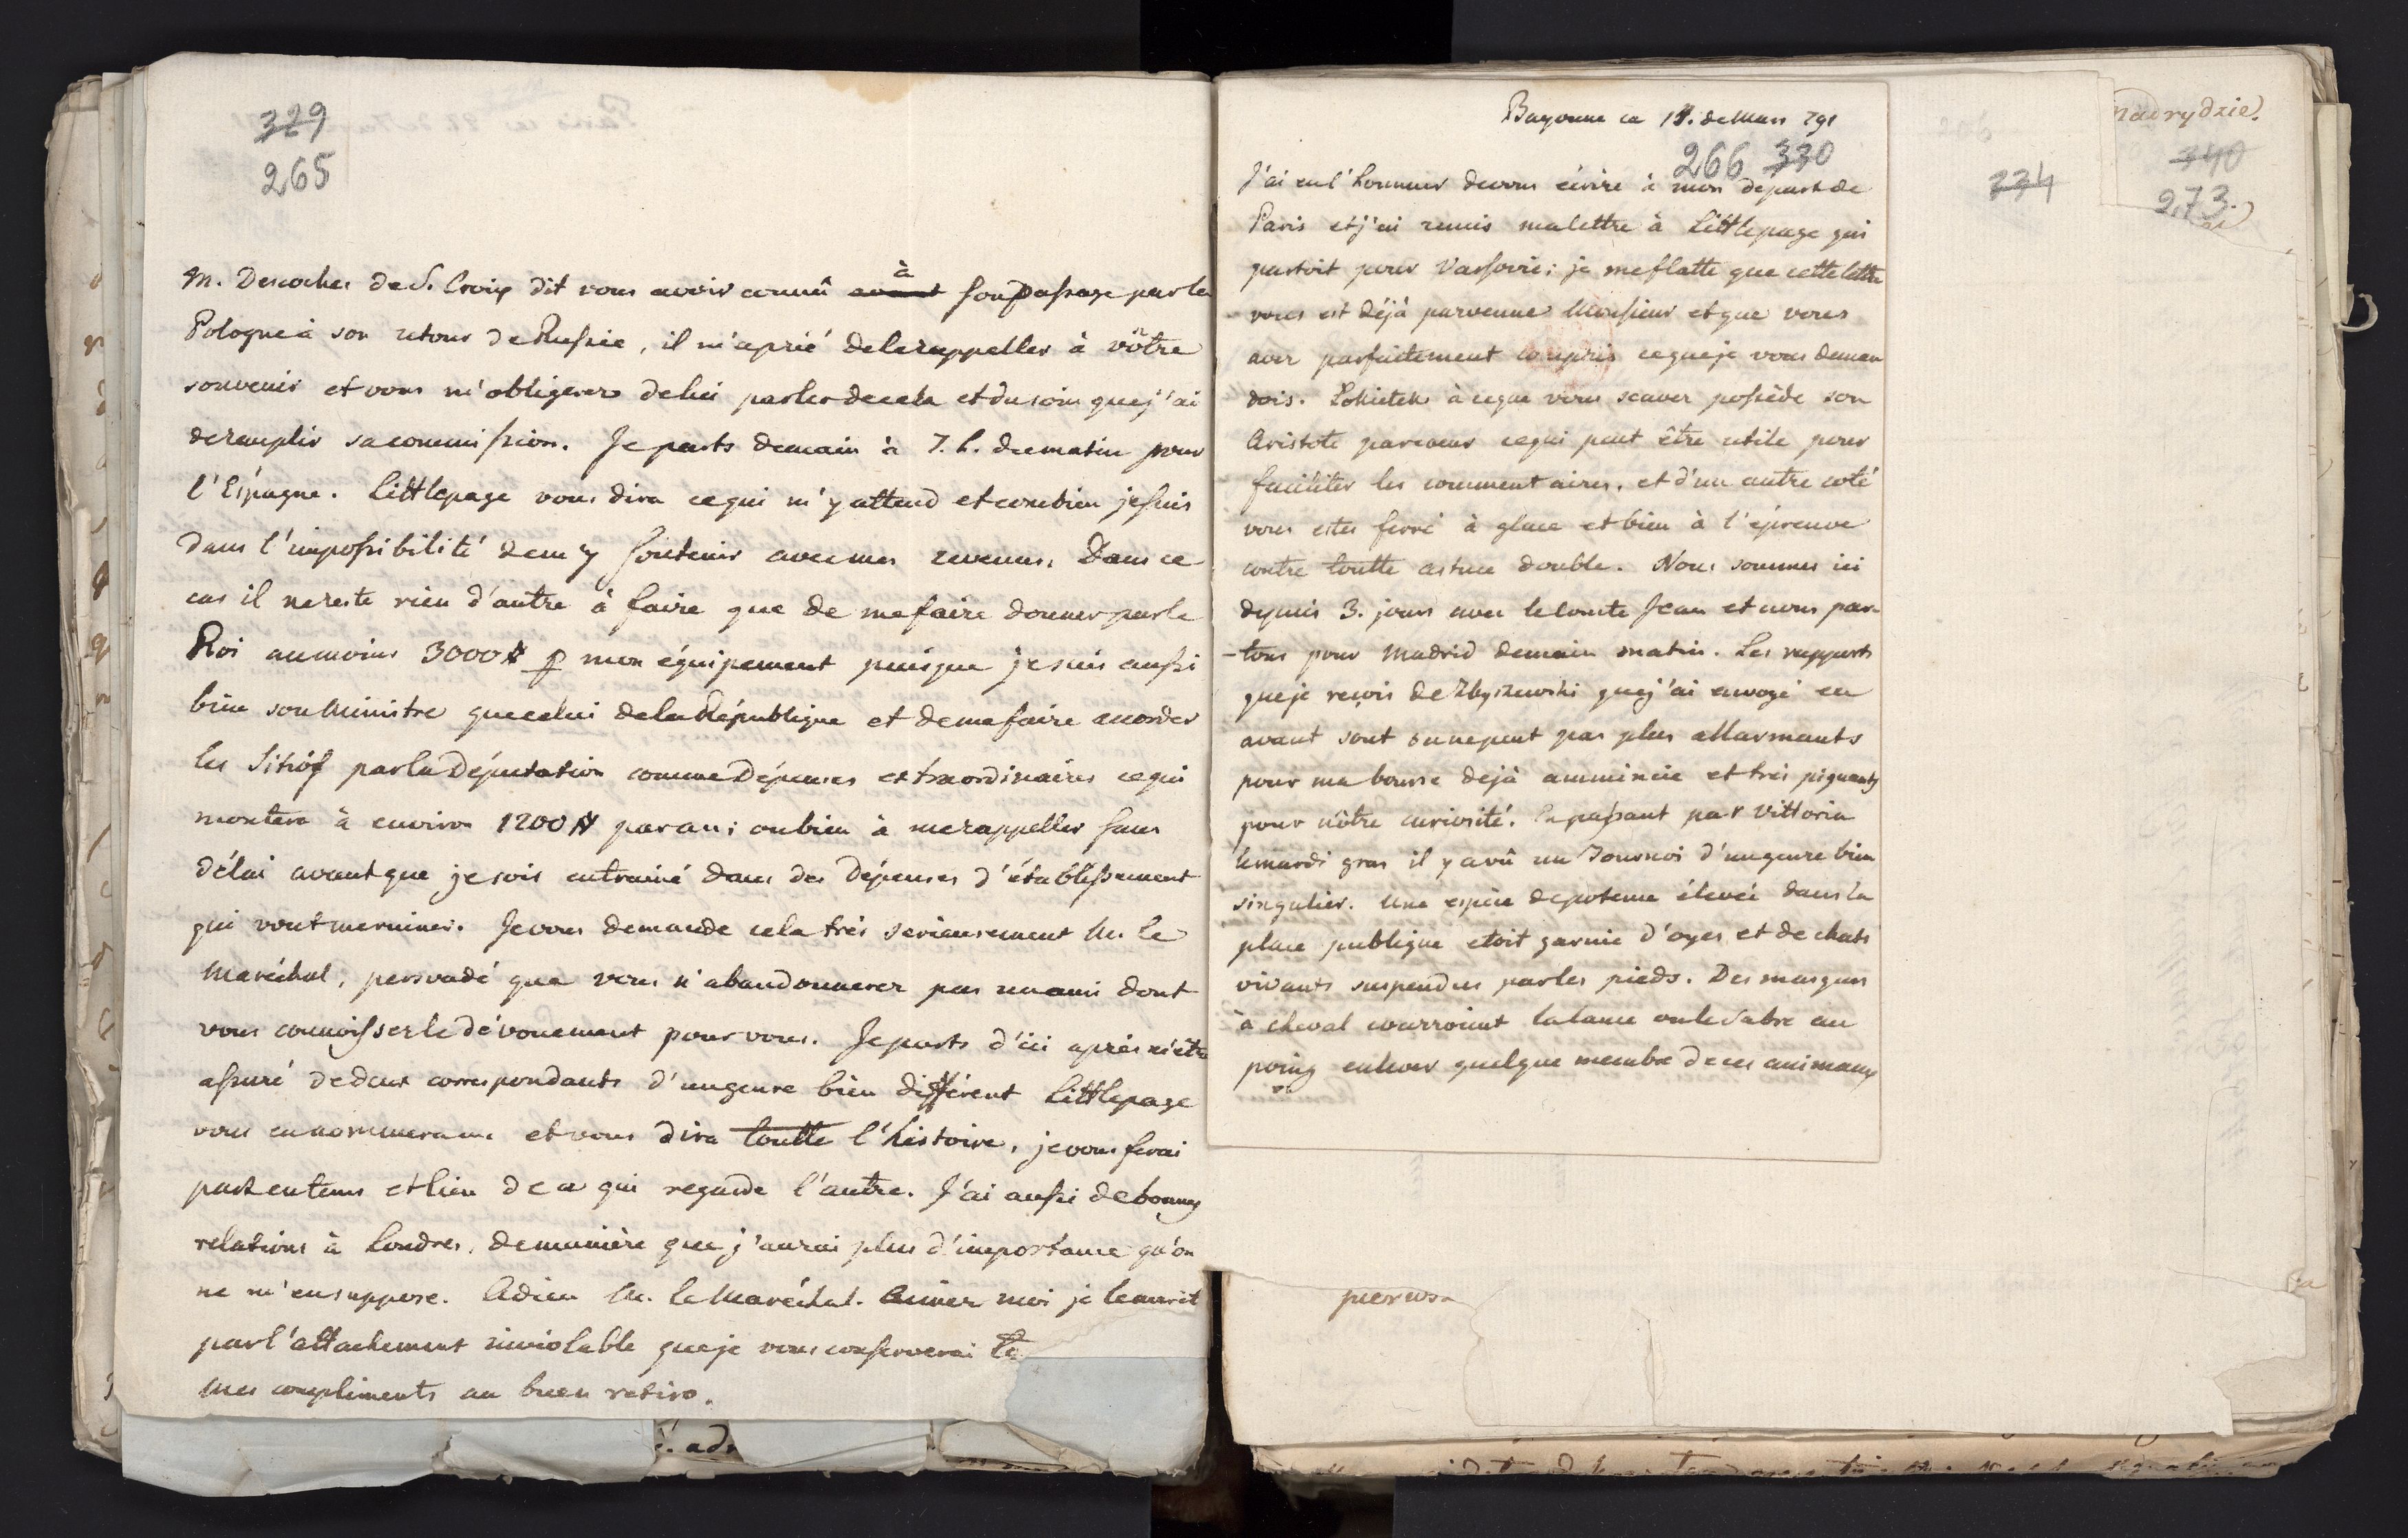 329
265
M. Descoches de S. Croix dit vous avoir connû avant à son passage par la
Pologne à son retour de Russie, il m'a prié de le rappeller à vôtre
souvenir et vous m'obligerez de lui parler de cela et du soin que j'ai
de remplir sa commission. Je parts demain à 7. h. du matin pour
l'Espagne. Littlepage vous dira ce qui m'y attend et combien je suis
dans l'impossibilité de m'y soutenir avec mes revenus. Dans ce
cas il ne reste rien d'autre à faire que de me faire donner par le
Roi au moins 3000 # p mon équipement puisque je suis aussi
bien son Ministre que celui de la République et de me faire accorder
les par la Députation comme Dépenses extraordinaires ce qui
montera à environ 1200 # par an; ou bien à me rappeller sans
délai avant que je sois entrainé dans des Dépenses d'établissement
qui vont me ruiner. Je vous demande cela très serieusement M. le
Maréchal, persuadé que vous n'abandonnerez pas un ami dont
vous connoissez le dévouement pour vous. Je parts d'ici après m'être
assuré de deux correspondants d'un genre bien différent Littlepage
vous en nommera un et vous dira toutte l'histoire, je vous ferai
part en tems et lieu de ce qui regarde l'autre. J'ai aussi de bonnes
relations à Londres, de manière que j'aurai plus d'importance qu'on
ne m'en suppose. Adieu M. le Maréchal. Aimez moi je le merite
par l'attachement inviolable que je vous conserverai
Mes compliments au buen retiro.
Bayonne ce de Mars 791
266 330
J'ai eu l'honneur de vous écrire à mon depart de
Paris et j'ai remis ma lettre à Littlepage qui
partoit pour Varsovie; je me flatte que cette lettre
vous est déjà parvenue Monsieur et que vous
avez parfaitement compris ce que je vous deman
dois. Lokietek à ce que vous scavez possède son
Aristote par coeur ce qui peut être utile pour
faciliter les commentaires, et d'un autre coté
vous etes ferré à glace et bien à l'épreuve
contre toutte astuce double. Nous sommes ici
depuis 3. jours avec le Comte Jean et nous par-
-tons pour Madrid demain matin. Les rapports
que je reçois de Zbyszewski que j'ai envoyé en
avant sont on ne peut pas plus allarmants
pour ma bourse dejà ammincie et très piquants
pour nôtre curiosité. En passant par Vittoria
le mardi gras il y a vû un Tournoi d'un genre bien
singulier. Une espèce de potence élevée dans la
place publique etoit garnie d'oyes et de chats
vivants suspendus par les pieds. Des masques
à cheval courroient la lance ou le sabre au
poing enlever quelque membre de ces animaux
334
Madrydzie.
340
273.
pierwsz